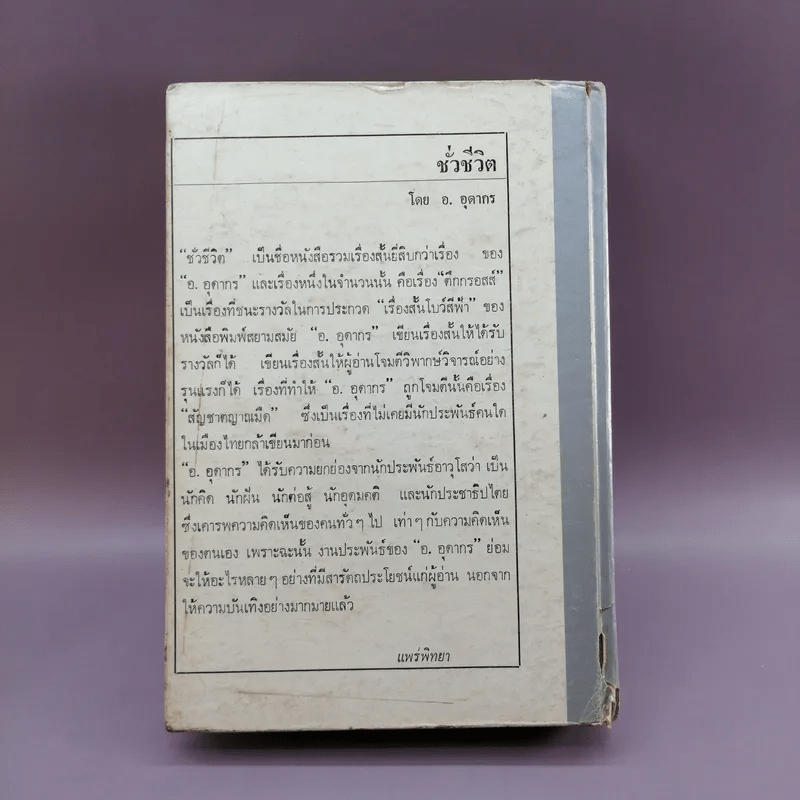 ชั่วชีวิต
โดย อ. อุดากร
"ชั่วชีวิต" เป็นชื่อหนังสือรวมเรื่องสั้นยี่สิบกว่าเรื่อง ของ
"อ. อุดากร" และเรื่องหนึ่งในจำนวนนั้น คือเรื่อง "ตึกกรอสส์"
เป็นเรื่องที่ชนะรางวัลในการประกวด "เรื่องสั้นโบว์สีฟ้า" ของ
หนังสือพิมพ์สยามสมัย "อ. อุดากร" เขียนเรื่องสั้นให้ได้รับ
รางวัลก็ได้ เขียนเรื่องสั้นให้ผู้อ่านโจมตีวิพากษ์วิจารณ์อย่าง
รุนแรงก็ได้ เรื่องที่ทำให้ "อ. อุดากร" ถูกโจมตีนั้นคือเรื่อง
"สัญชาตญาณมืด" ซึ่งเป็นเรื่องที่ไม่เคยมีนักประพันธ์คนใด
ในเมืองไทยกล้าเขียนมาก่อน
"อ. อุดากร" ได้รับความยกย่องจากนักประพันธ์อาวุโสว่า เป็น
นักคิด นักฝัน นักต่อสู้ นักอุดมคติ และนักประชาธิปไตย
ซึ่งเคารพความคิดเห็นของคนทั่วๆ ไป เท่าๆ กับความคิดเห็น
ของตนเอง เพราะฉะนั้น งานประพันธ์ของ "อ. อุดากร" ย่อม
จะให้อะไรหลายๆ อย่างที่มีสารัตถประโยชน์แก่ผู้อ่าน นอกจาก
ให้ความบันเทิงอย่างมากมายแล้ว
แพร่พิทยา